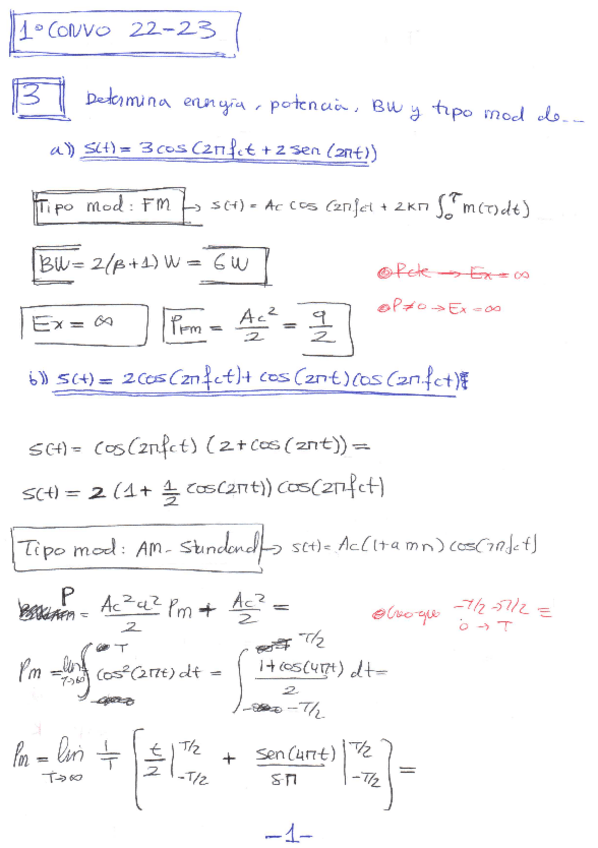 1º CONVO 22-23
3 Determina energía, potencia, BW y tipo mod de...
a)) s(t) = 3cos(2πfct + 2sen(2πt))
Tipo mod: FM → s(t) = Ac cos(2πfct + 2kπ ∫₀^τ m(τ)dt)
BW = 2(β+1)W = 6W
Pcte → Ex = ∞
P≠0 → Ex = ∞
Ex = ∞ P_FM = Ac²/2 = 9/2
b)) s(t) = 2cos(2πfct) + cos(2πt)cos(2πfct)
s(t) = cos(2πfct) (2+cos(2πt)) =
s(t) = 2 (1 + 1/2 cos(2πt)) cos(2πfct)
Tipo mod: AM-Standard → s(t) = Ac(1+a mn) cos(2πfct)
P = Ac²a²/2 Pm + Ac²/2 =
Creo que -T/2 → T/2 ≡
0 → T
Pm = lim T→∞ ∫^T cos²(2πt) dt = ∫_{-T/2}^{T/2} (1+cos(4πt))/2 dt =
Pm = lim T→∞ 1/T [ t/2 |_{-T/2}^{T/2} + sen(4πt)/8π |_{-T/2}^{T/2} ] =
-1-